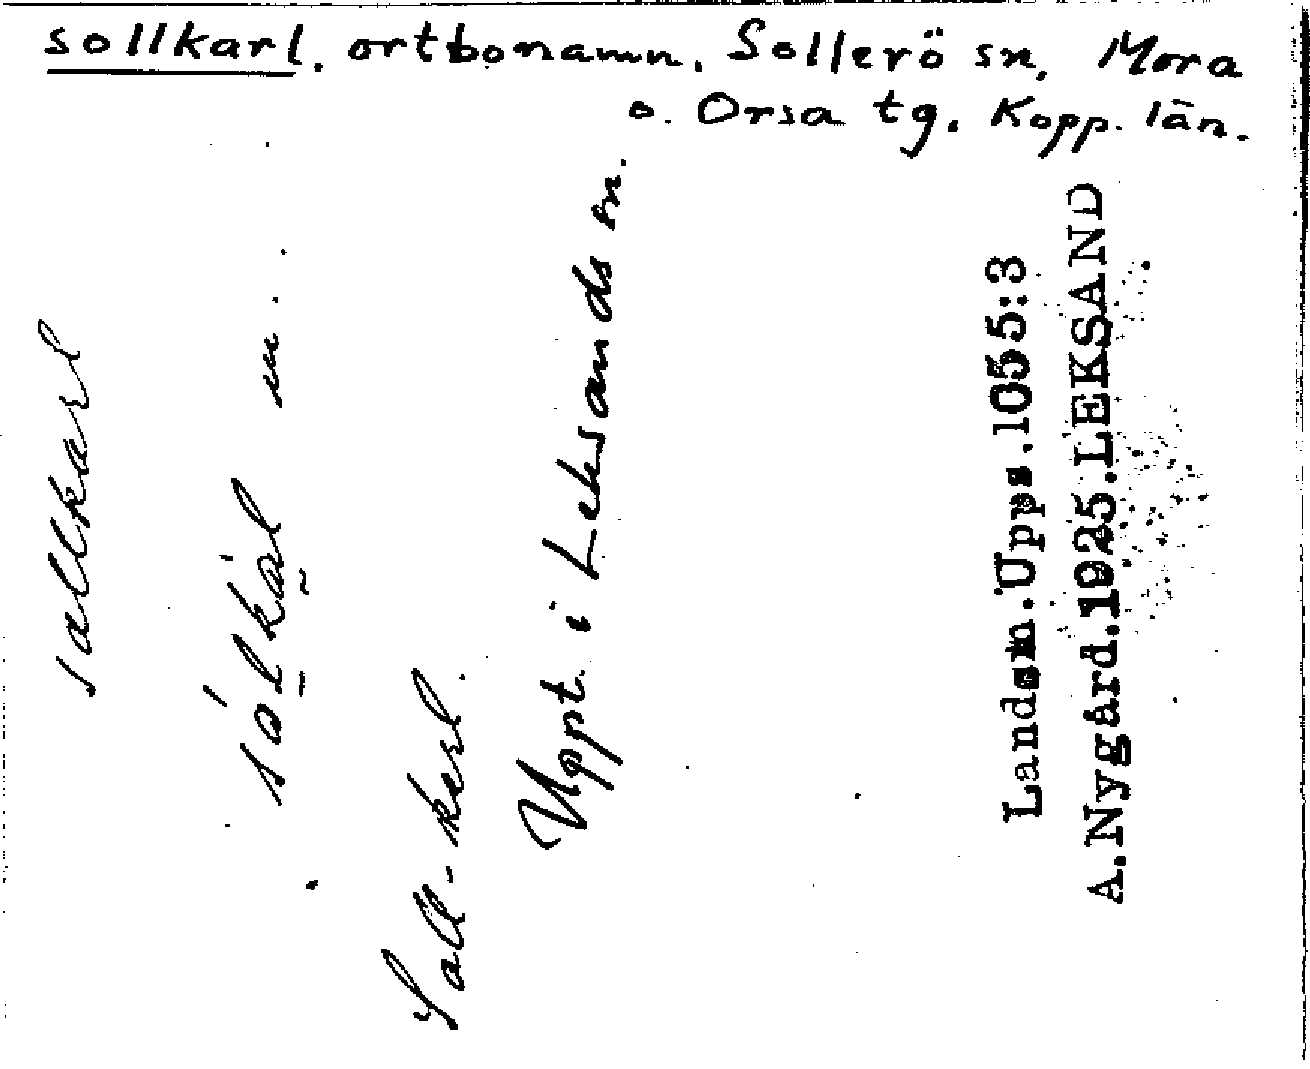 sollkarl, ortbonamn, Sollerö sn, Mora
o. Orsa tg. Kopp. län.
sallkarl
m.
Sall-karl.
Uppt. i Leksands sn.
Landsm.Upps.1055:3
A.Nygård.1925.LEKSAND